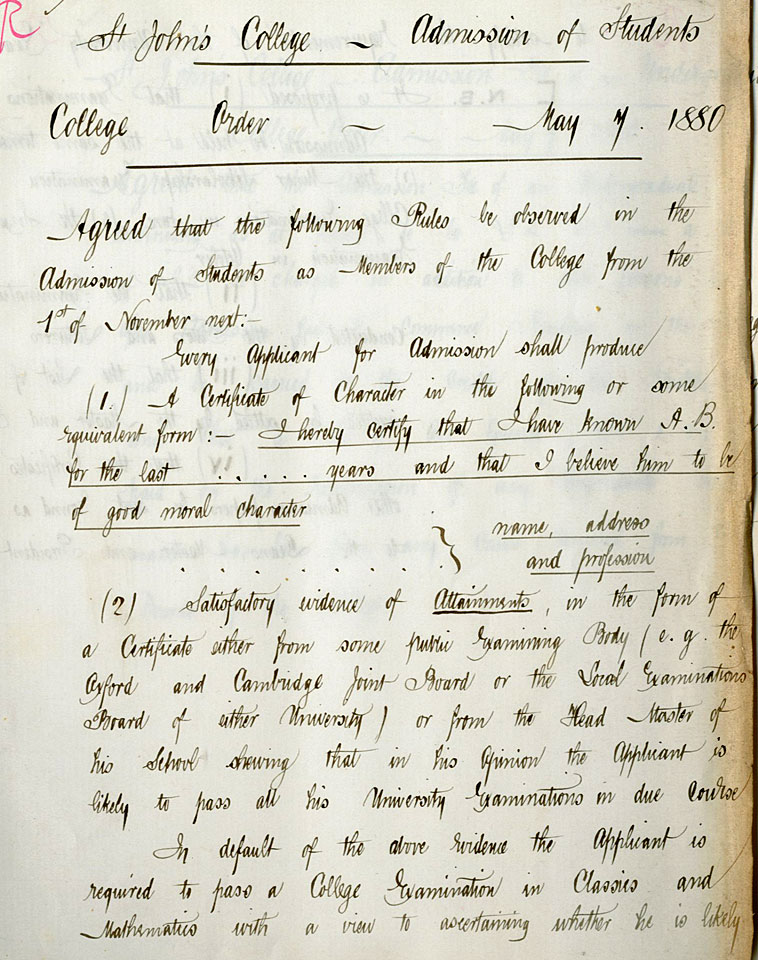 R
St John's College — Admission of Students
College Order — — May 7. 1880
Agreed that the following Rules be observed in the
Admission of Students as Members of the College from the
1st of November next:—
Every Applicant for Admission shall produce
(1.) A Certificate of Character in the following or some
equivalent form:— I hereby certify that I have known A.B.
for the last . . . . . years and that I believe him to be
of good moral character
. . . . . . . . } name, address
and profession
(2) Satisfactory evidence of Attainments, in the form of
a Certificate either from some public Examining Body (e.g. the
Oxford and Cambridge Joint Board or the Local Examinations
Board of either University) or from the Head Master of
his School shewing that in his Opinion the Applicant is
likely to pass all his University Examinations in due course
In default of the above Evidence the Applicant is
required to pass a College Examination in Classics and
Mathematics with a view to ascertaining whether he is likely